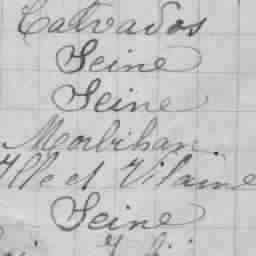 Calvados
Seine
Seine
Morbihan.
Ille et Vilaine
Seine